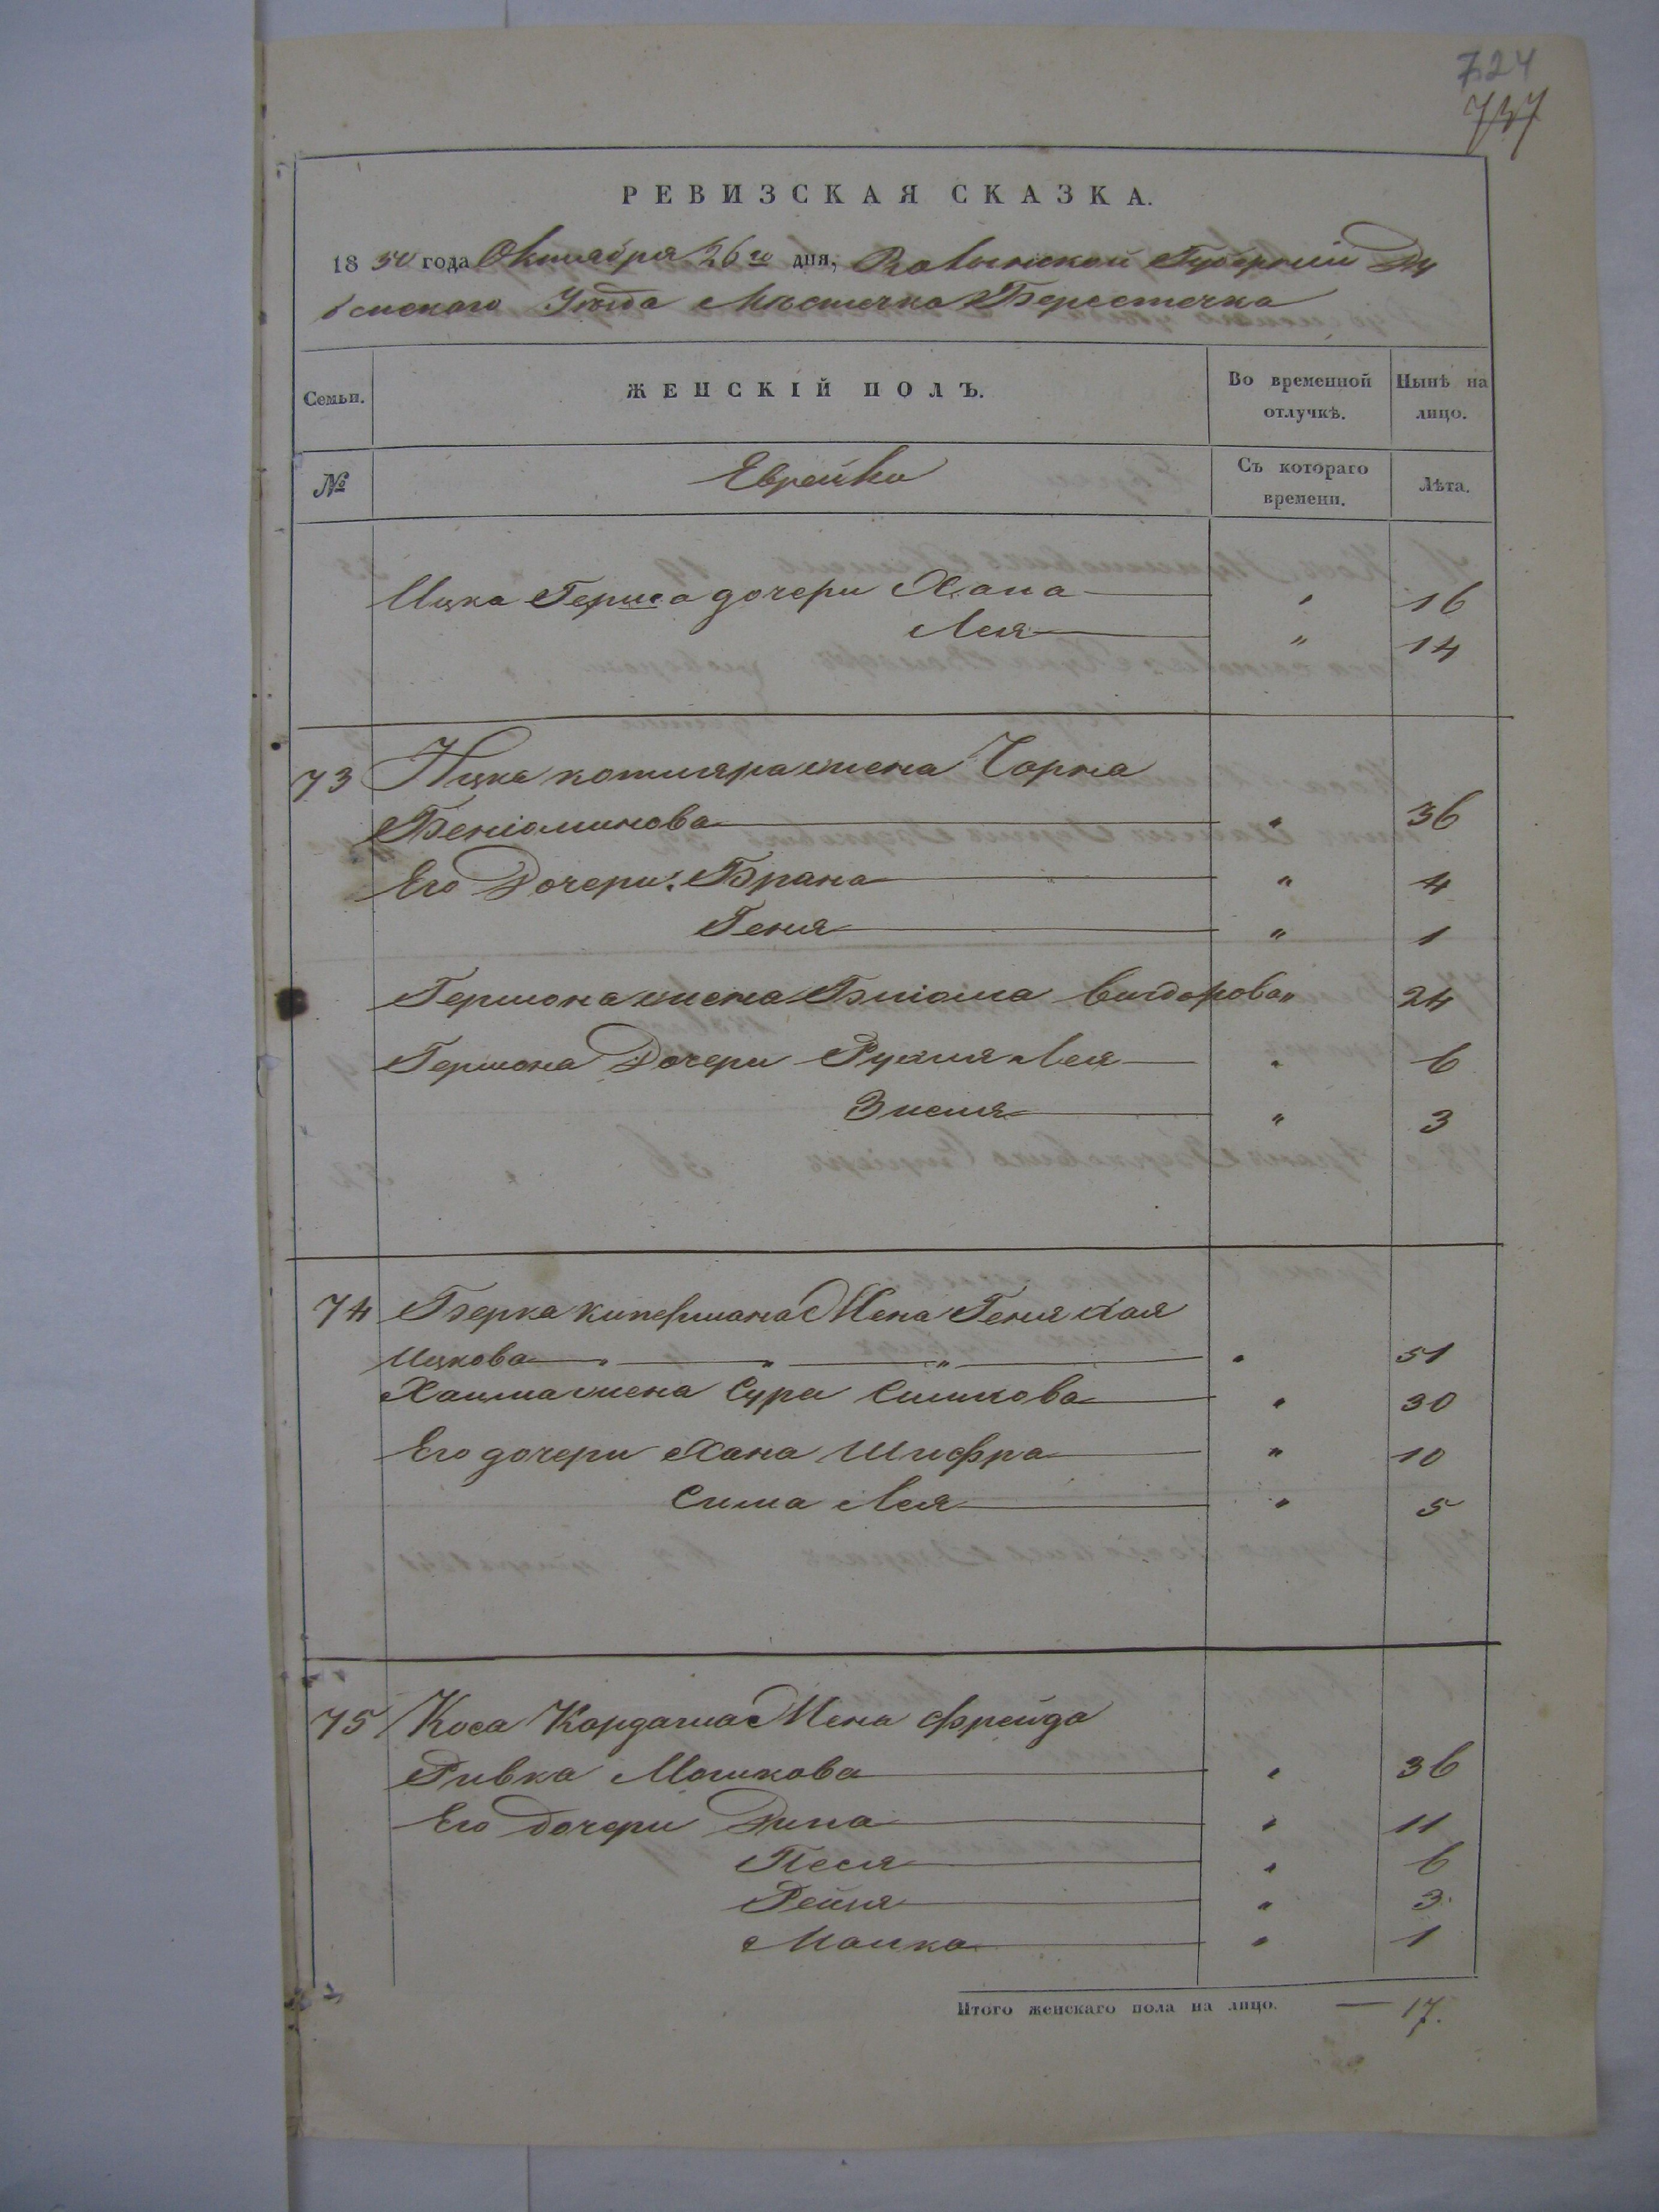 724
737
РЕВИЗСКАЯ СКАЗКА.
1850 года Октября 26го дня, Волынской Губернии Ду
бенскаго Уѣзда Мѣстечка Берестечка
Семьи. ЖЕНСКІЙ ПОЛЪ. Во временной отлучкѣ. Нынѣ на лицо.
№ Еврейки Съ котораго времени. Лѣта.
Ицка Герша дочери Хана " 16
Лея " 14
73 Ицка жена Чарна
Беніоминова " 36
Его Дочери: Брана " 4
Геня " 1
Гершона жена Вигдорова " 24
Гершона Дочери Рухля Лея " 6
Зисля " 3
74 Берка Кипермана Жена Геня Хая
Ицкова " " " 51
Хаима жена Сура Симхова " 30
Его дочери Хана Шифра " 10
Сима Лея " 5
75 Коса Кардаша Жена Фрейда
Ривка Мошкова " 36
Его дочери Дина " 11
Песя " 6
Рейзя " 3
Малка " 1
Итого женскаго пола на лицо. — 17.